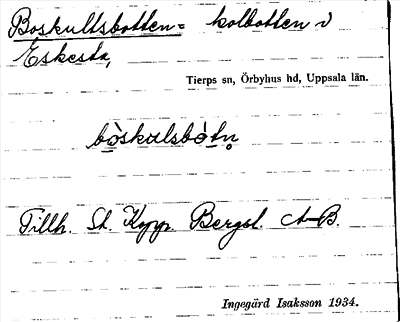 Boskultsbotten = kolbotten i
Eskesta,
Tierps sn, Örbyhus hd, Uppsala län.
bòskulsbòtn̥
Tillh. St. Kopp. Bergsl. A-B.
Ingegärd Isaksson 1934.